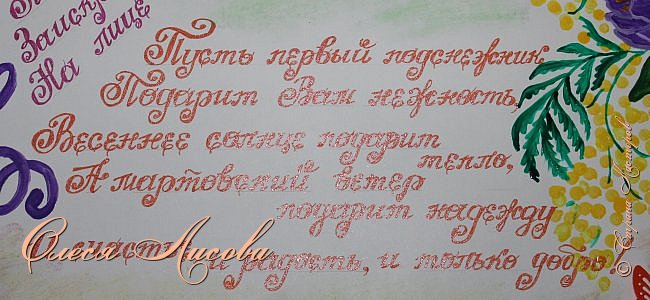 Заискр
На лице
Пусть первый подснежник
Подарит Вам нежность,
Весеннее солнце подарит
тепло,
А мартовский ветер
подарит надежду
и радость, и только добро!
Олеся Лисова
© Страна Мастеров